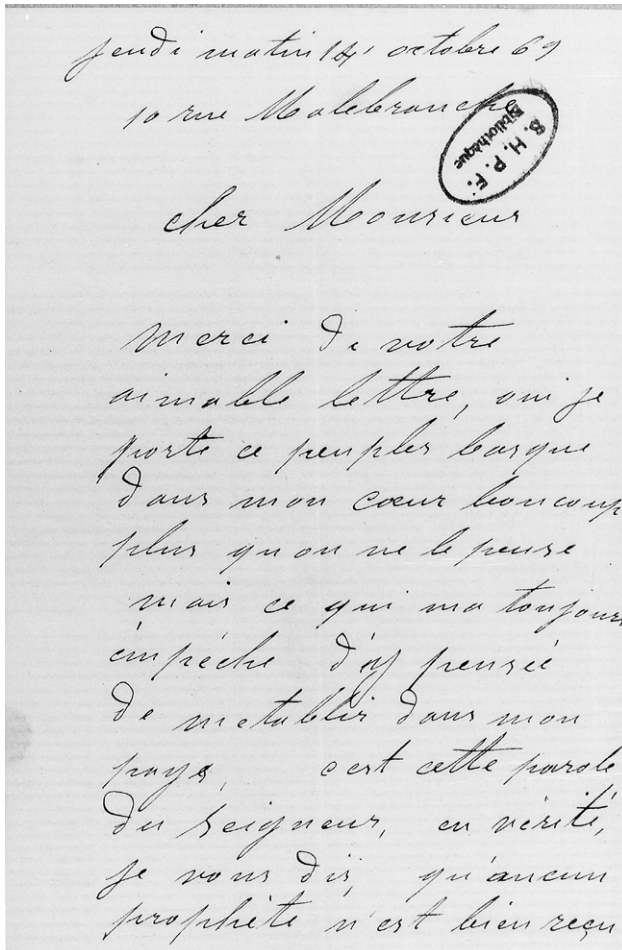 jeudi matin 14 octobre 69
10 rue Malebranche
B. H. P. F.
Bibliothèque
cher Monsieur
merci de votre
aimable lettre, oui je
porte ce peuples basque
dans mon cœur boucoup
plus qu on ne le pense
mais ce qui ma toujours
émpéché d'y pensée
de metablir dans mon
pays, cest cette parole
du seigneur, en vérité,
je vous dis, qu'aucun
prophète n'est bien reçu